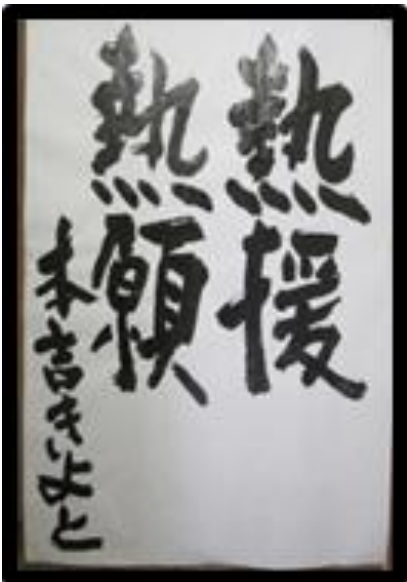 熱援
熱願
本吉きよと